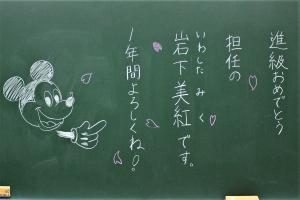 進級おめでとう
担任の
いわした みく
岩下美紅です。
1年間よろしくね!